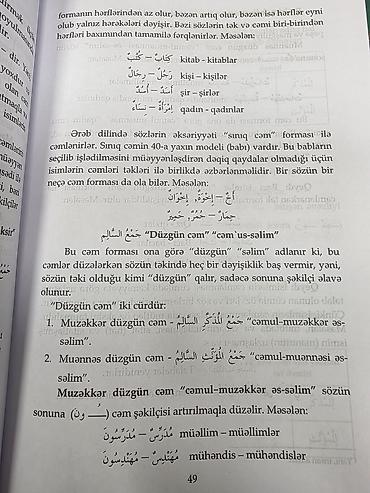 formanın hərflərindən az olur, bəzən artıq olur, bəzən isə hərflər eyni
olub yalnız hərəkələri dəyişir. Bəzi sözlərin tək və cəmi biri-birindən
hərfləri baxımından tamamilə fərqlənirlər. Məsələn:
كِتَابٌ – كُتُبٌ kitab - kitablar
رَجُلٌ – رِجَالٌ kişi – kişilər
أَسَدٌ – أُسُدٌ şir – şirlər
اِمْرَأَةٌ – نِسَاءٌ qadın - qadınlar
Ərəb dilində sözlərin əksəriyyəti “sınıq cəm” forması ilə
cəmlənirlər. Sınıq cəmin 40-a yaxın modeli (babı) vardır. Bu babların
seçilib işlədilməsini müəyyənləşdirən dəqiq qaydalar olmadığı üçün
isimlərin cəmləri təkləri ilə birlikdə əzbərlənməlidir. Bir sözün bir
neçə cəm forması da ola bilər. Məsələn:
أَخٌ – إِخْوَةٌ, إِخْوَانٌ
حِمَارٌ – حُمُرٌ, حَمِيرٌ
جَمْعُ السَّالِمِ “Düzgün cəm” “cəm`us-səlim”
Bu cəm forması ona görə “düzgün” “səlim” adlanır ki, bu
cəmlər düzələrkən sözün təkində heç bir dəyişiklik baş vermir, yəni,
sözün təki olduğu kimi “düzgün” qalır, sadəcə sonuna şəkilçi əlavə
olunur.
“Düzgün cəm” iki cürdür:
1. Muzəkkər düzgün cəm - جَمْعُ الْمُذَكَّرِ السَّالِمُ “cəmul-muzəkkər əs-
səlim”.
2. Muənnəs düzgün cəm - جَمْعُ الْمُؤَنَّثِ السَّالِمُ “cəmul-muənnəsi əs-
səlim”.
Muzəkkər düzgün cəm “cəmul-muzəkkər əs-səlim” sözün
sonuna (ـُـ ونَ) cəm şəkilçisi artırılmaqla düzəlir. Məsələn:
مُدَرِّسٌ – مُدَرِّسُونَ müəllim – müəllimlər
مُهَنْدِسٌ – مُهَنْدِسُونَ mühəndis – mühəndislər
49